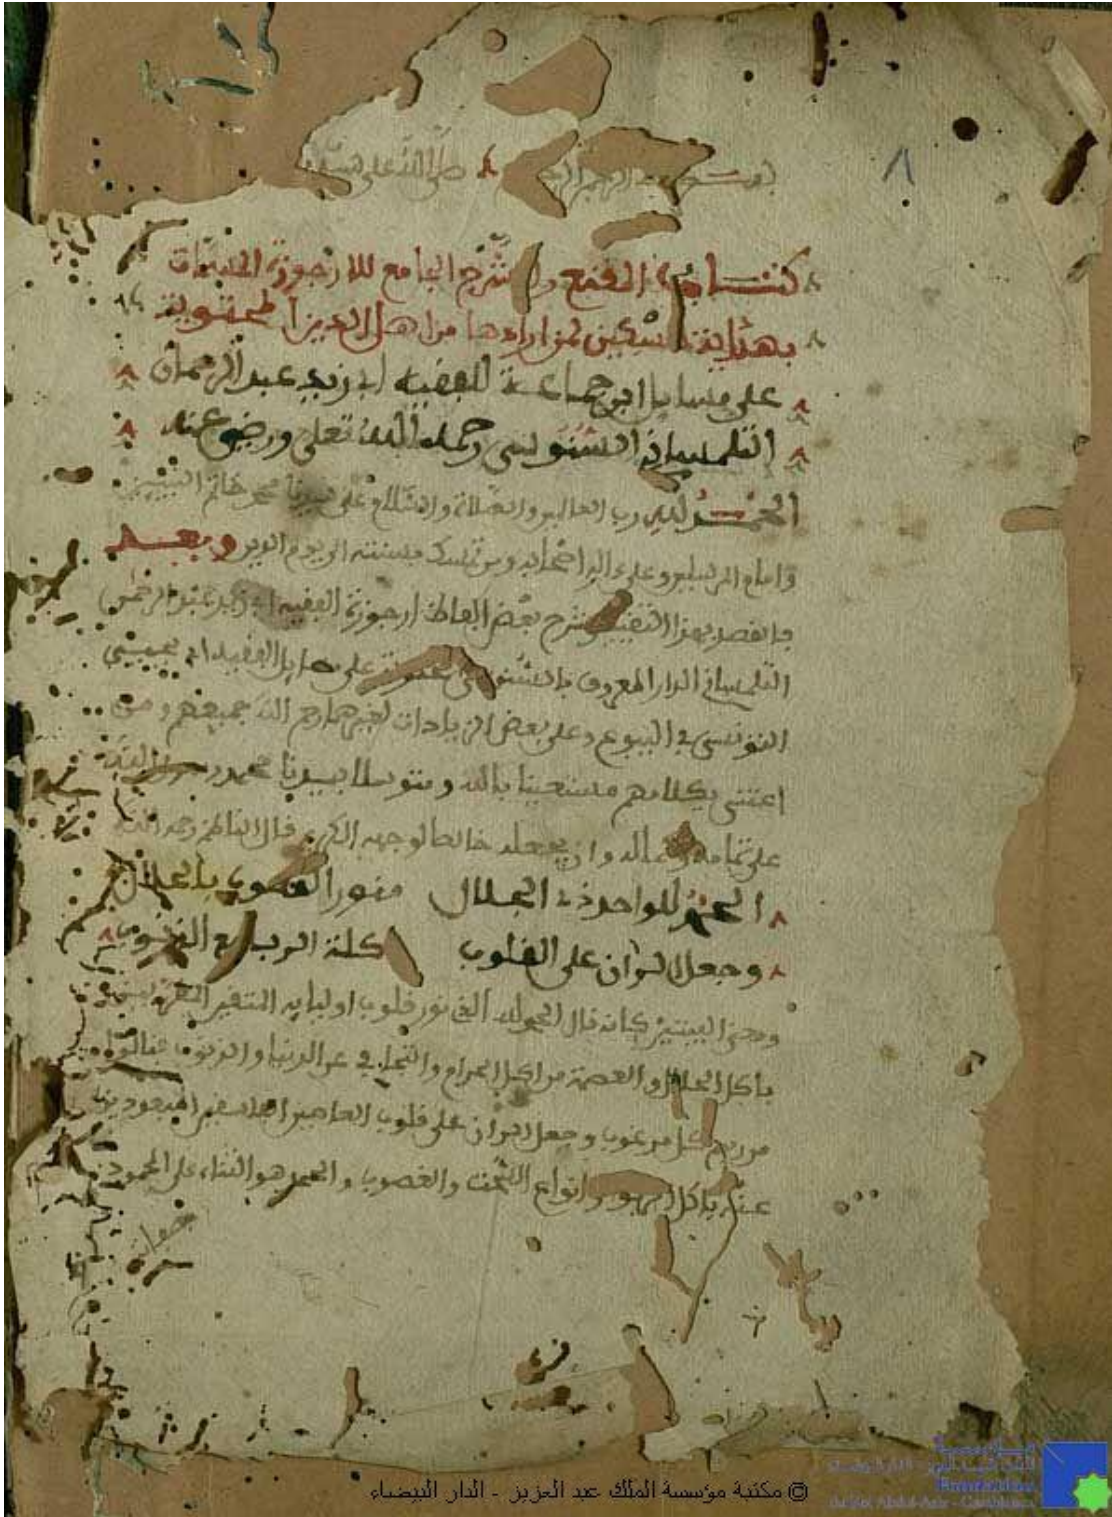 بسم الله الرحمن الرحيم صلى الله على سيدنا
كتاب المقنع والشرح الجامع للارجوزة المسمات
بهداية المسكين لمن ارادها من اهل الدين المحتوية
على مسايل ابن جماعة للفقيه ابي زيد عبد الرحمان
التلمساني السنوسي رحمه الله تعلى ورضي عنه
الحمد لله رب العالمين والصلاة والسلام على سيدنا محمد خاتم النبيئين
وامام المرسلين وعلى اله واصحابه ومن تمسك بسنته الى يوم الدين وبعد
فالقصد بهذا التقييد شرح بعض الفاظ ارجوزة الفقيه ابي زيد عبد الرحمن
التلمساني الدار المعروف بالسنوسي على مسايل الفقيه ابي يحيى
التونسي في البيوع وعلى بعض الزيادات لغيرهما رحم الله جميعهم ومن
اعتنى بكلامهم مستعينا بالله ومتوسلا بسيدنا محمد رسول الله
على تمامه وكماله وان يجعله خالصا لوجهه الكريم قال الناظم رحمه الله
الحمد للواحد ذي الجلال منور القلوب بالحلال
وجعل الران على القلوب اكلة الربا مع الغصوب
ومعنى البيتين كانه قال الحمد لله الذي نور قلوب اوليايه المتقين
باكل الحلال والعصمة من اكل الحرام والتجافي عن الدنيا والذنوب فنالوا
من ربهم كل مرغوب وجعل الران على قلوب العاصين الفاسقين المبعودين
عنه باكل الربا وانواع السحت والغصوب والحمد هو الثناء على المحمود
© مكتبة مؤسسة الملك عبد العزيز - الدار البيضاء